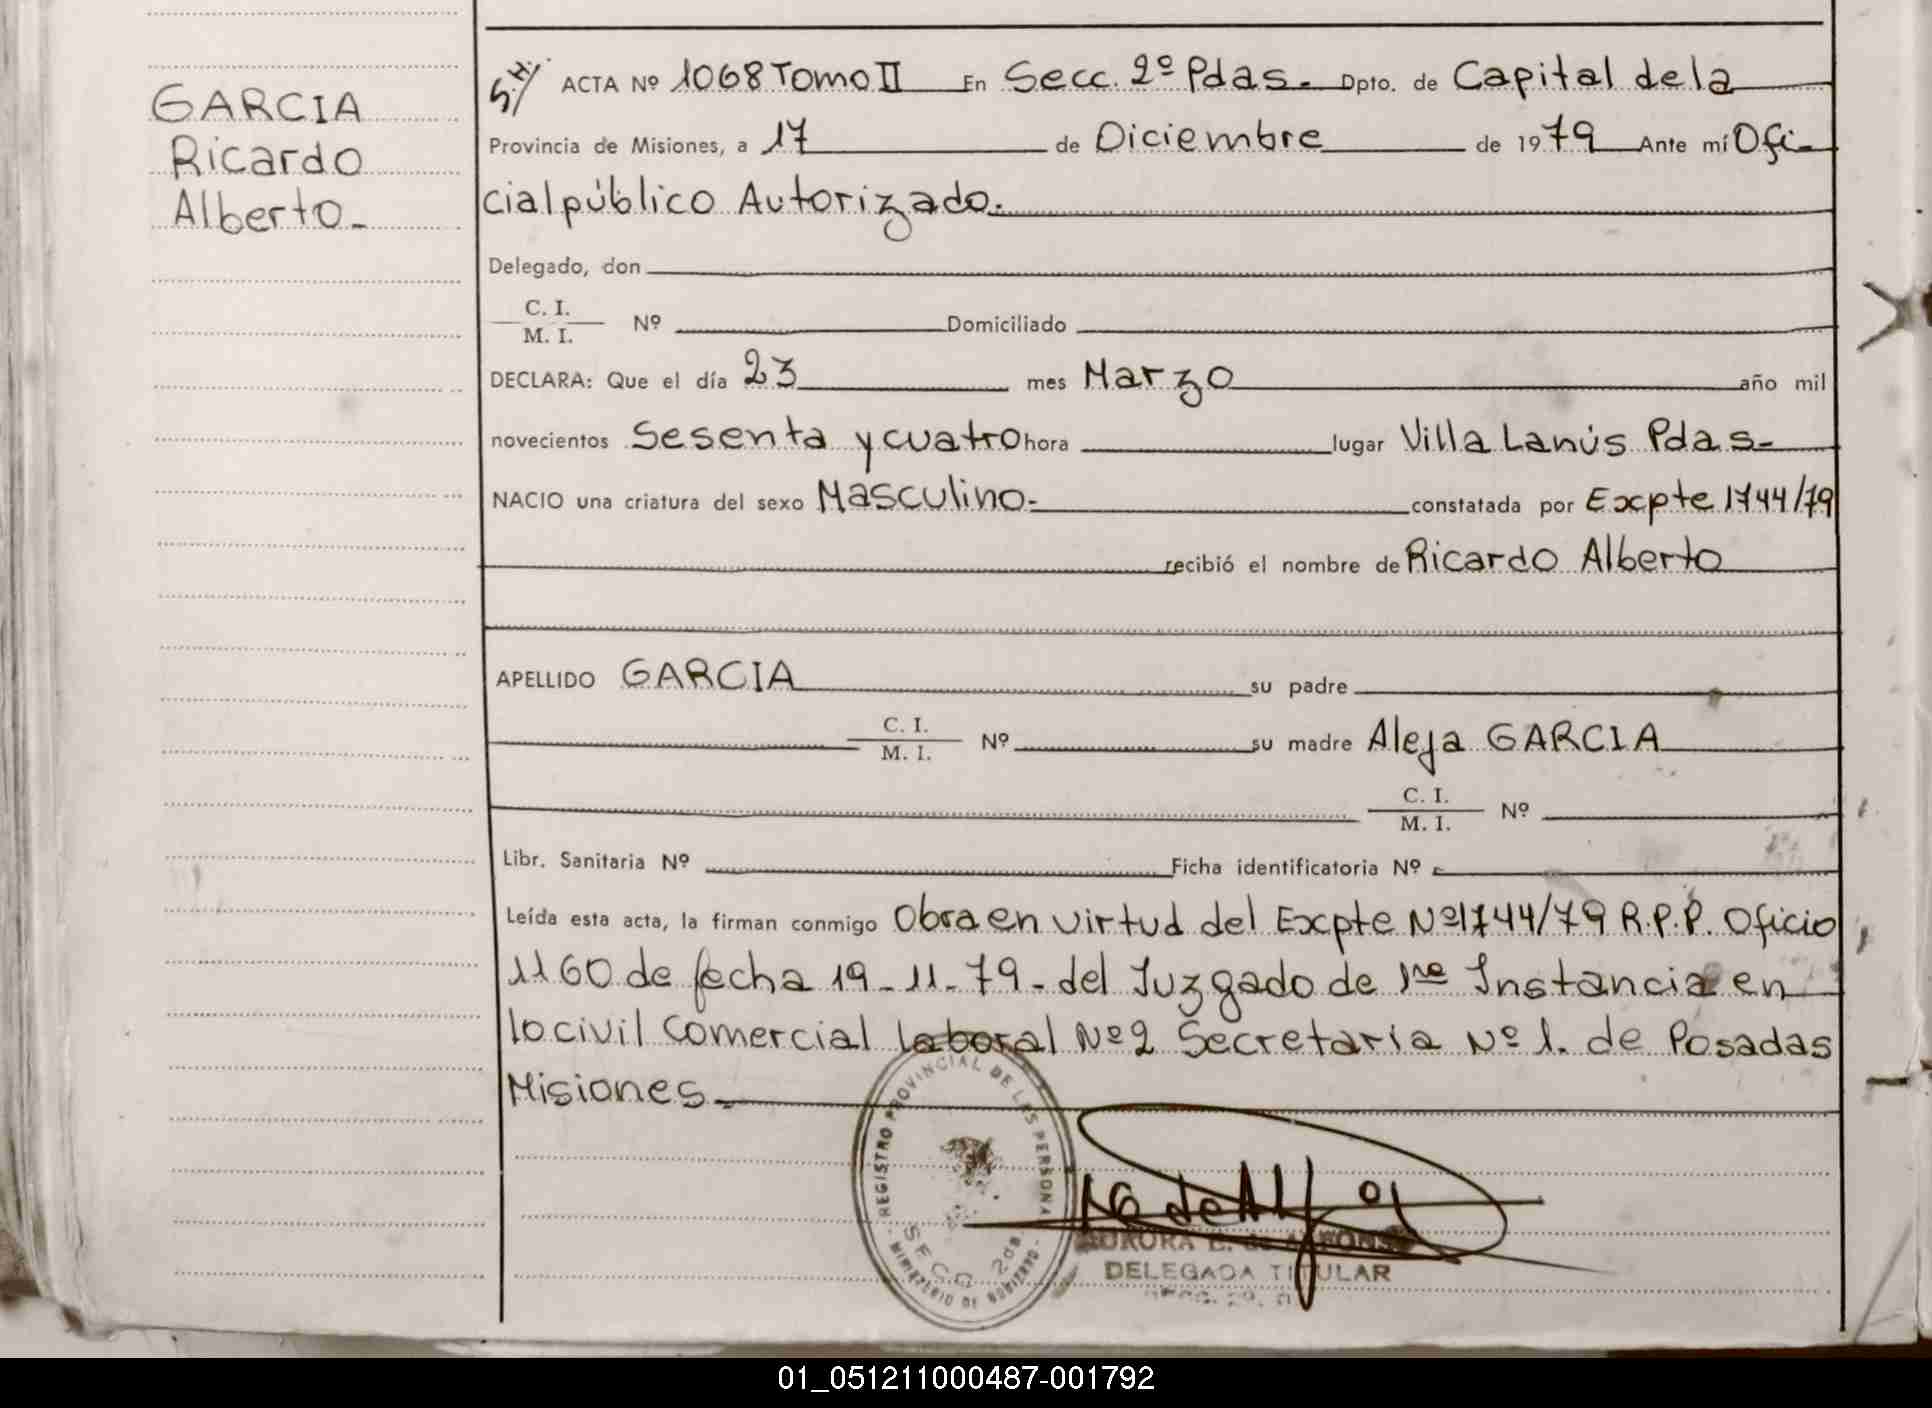 GARCIA
Ricardo
Alberto-
S.H/ ACTA Nº 1068 Tomo II En Secc. 2º Pdas. Dpto. de Capital de la
Provincia de Misiones, a 17 de Diciembre de 1979 Ante mí Ofi-
cial público Autorizado.
Delegado, don
C. I.
M. I. Nº Domiciliado
DECLARA: Que el día 23 mes Marzo año mil
novecientos Sesenta y cuatro hora lugar Villa Lanús Pdas-
NACIO una criatura del sexo Masculino- constatada por Excpte 1744/79
recibió el nombre de Ricardo Alberto
APELLIDO GARCIA su padre
C. I.
M. I. Nº su madre Aleja GARCIA
C. I.
M. I. Nº
Libr. Sanitaria Nº Ficha identificatoria Nº
Leída esta acta, la firman conmigo Obra en virtud del Excpte Nº1744/79 R.P.P. Oficio
1160 de fecha 19-11-79- del Juzgado de 1re Instancia en
lo civil Comercial laboral Nº2 Secretaria Nº 1. de Posadas
Misiones-
REGISTRO PROVINCIAL DE LAS PERSONAS
SECC. 2da.
MINISTERIO DE GOBIERNO
AURORA E. de
DELEGADA TITULAR
01_051211000487-001792